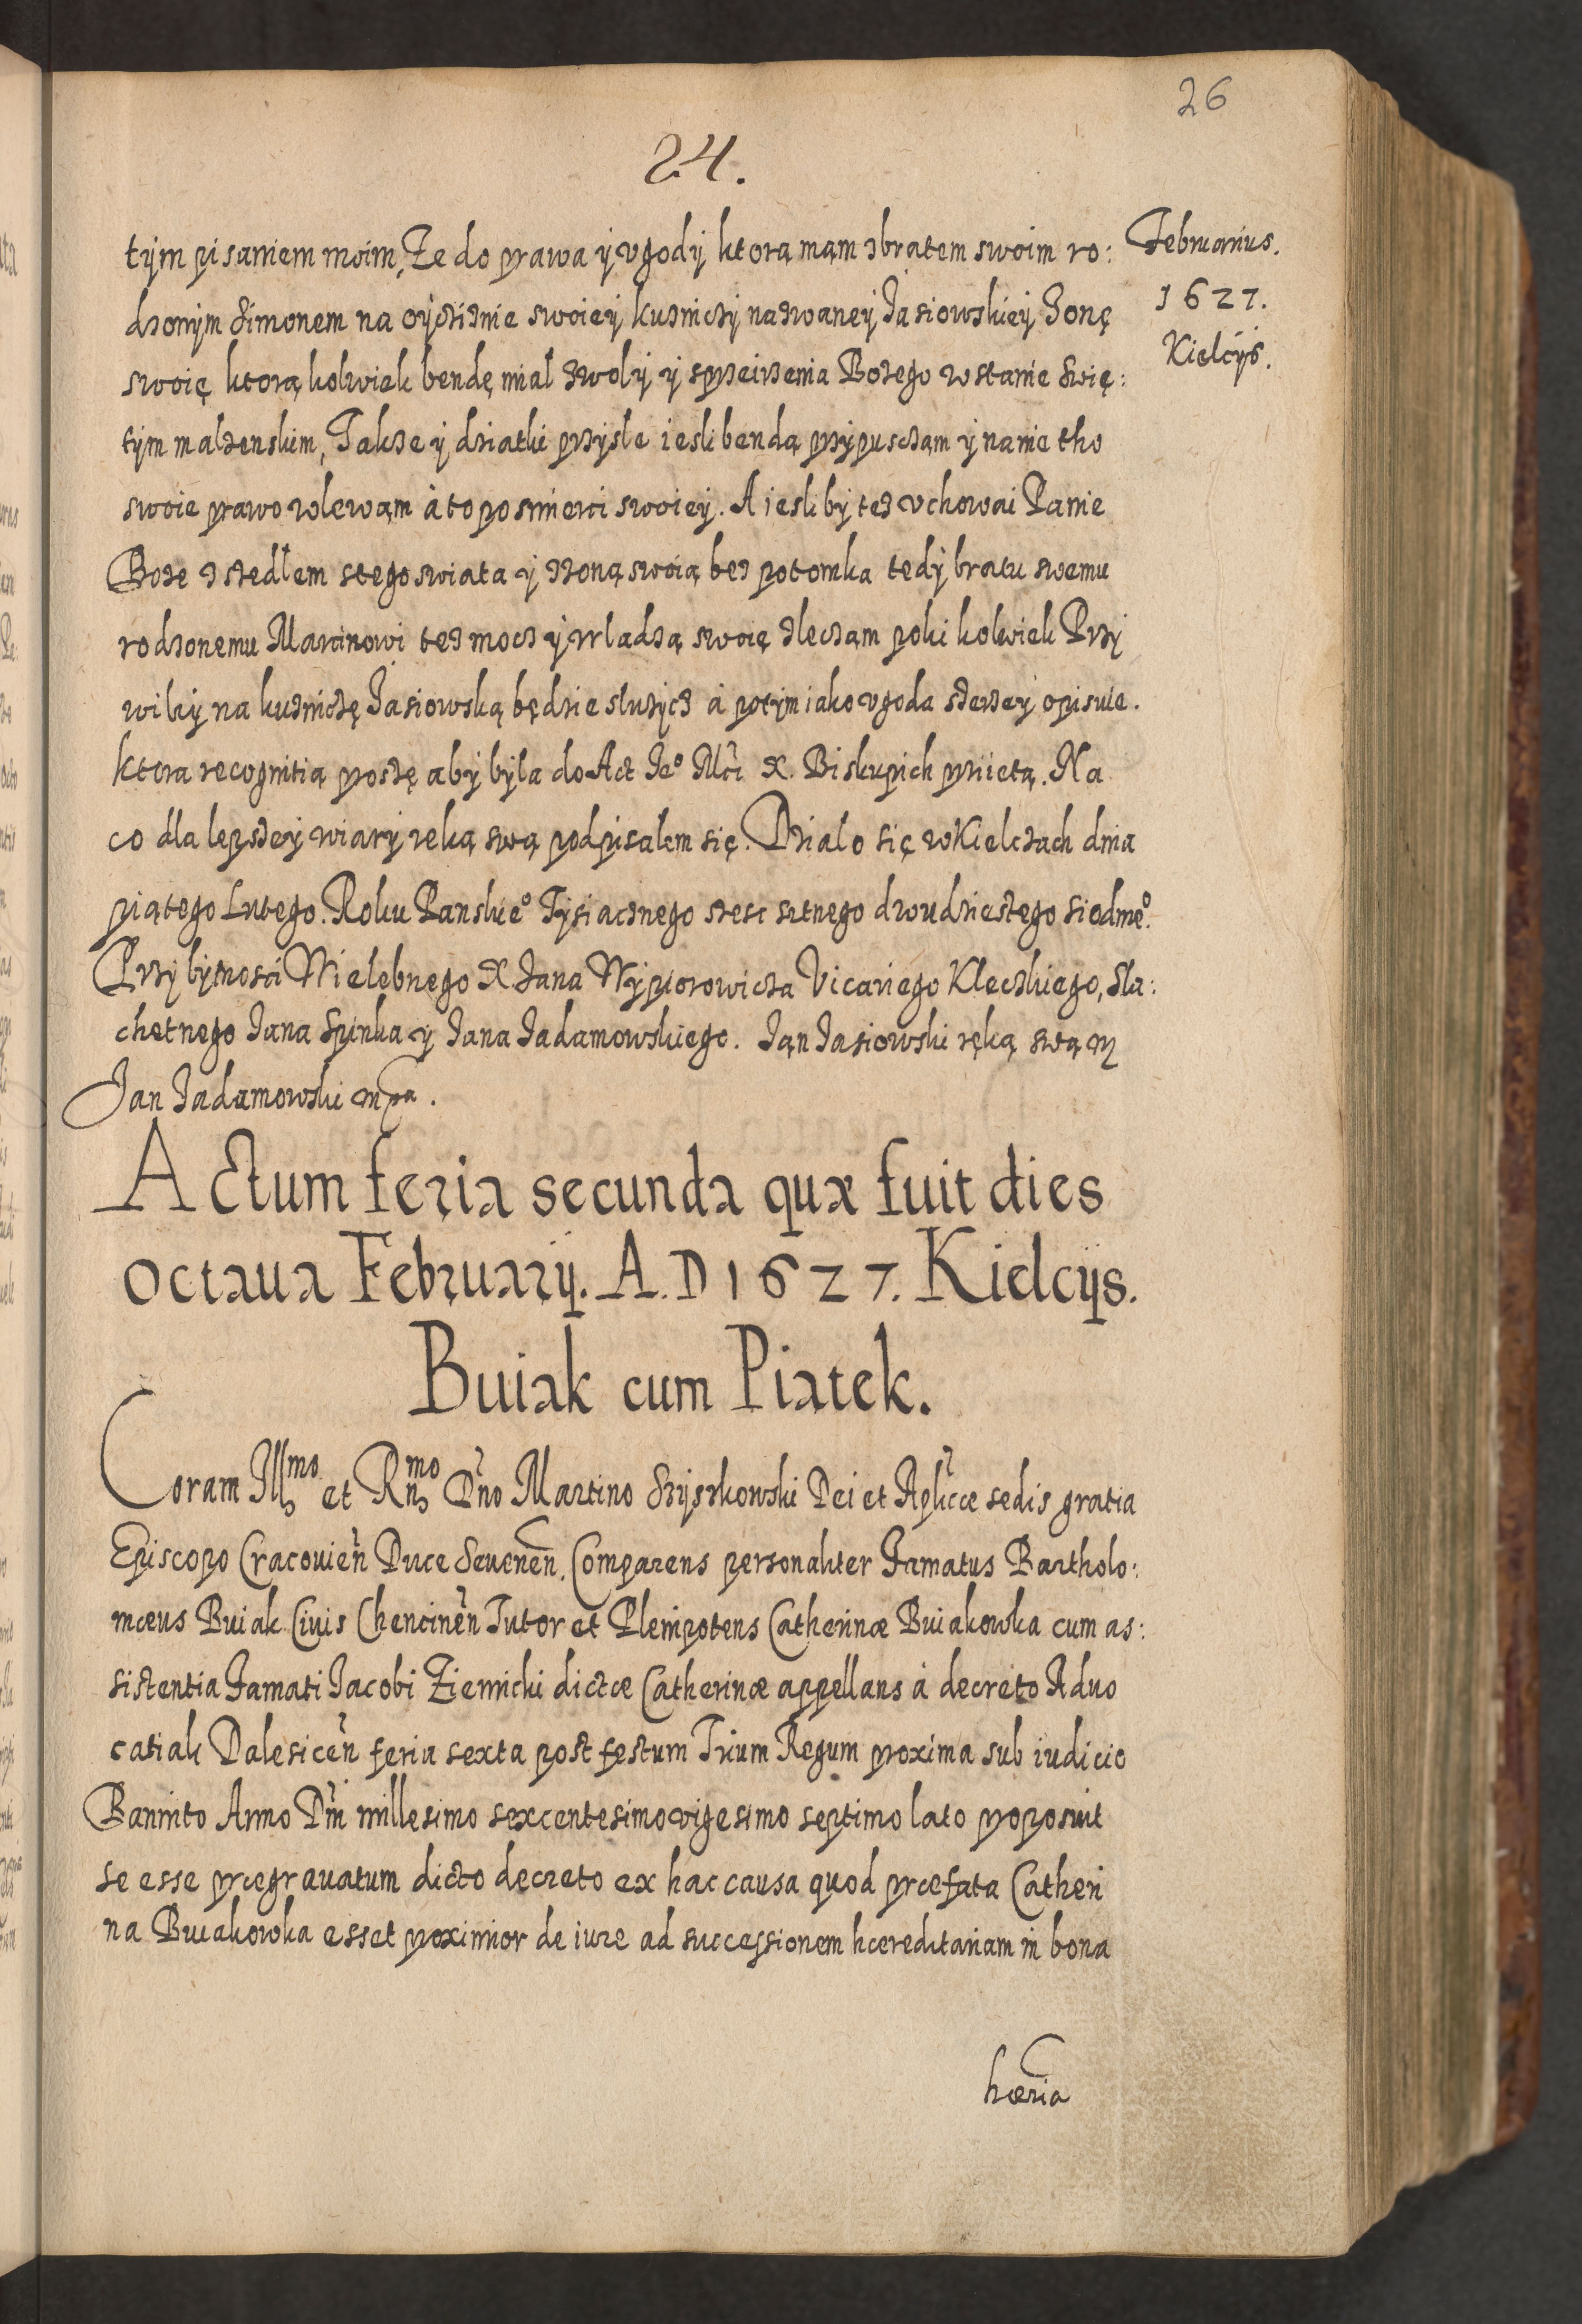 26
24.
Februarius.
1627.
Kielcÿs.
tym pisaniem moim, Ze do prawa ÿ vgodÿ ktorą mąm zbratem swoim ro:
dzonÿm Simonem na oÿcziznie swoieÿ kuzniczÿ nazwaneÿ Jasiowskieÿ Zonę
swoię ktorą kolwiek bendę miał zwolÿ ÿ sprzeirzenia Bozego wstanie Swię:
tÿm malzenskim, Takze ÿ dziatki przÿsłe iesli benda przÿpusczam ÿ nanie tho
swoie prawo wlewąm á to posmierci swoieÿ. A iesliby tez vchowai Panie
Boze zszedłem stego swiata ÿ zzoną swoią bez potomka tedÿ bratu swemu
rodzonemu Marcinowi tez mocz ÿ wladzą swoię zleczam poki kolwiek Przÿ
wiley na kuzniczę Jasiowską będzie sluzÿcz á potÿm iako vgoda szerzeÿ opisuie.
ktora recognitia proszę abÿ bÿla do Act Jeo Mci X. Biskupich prziietą. Na
co dla lepszeÿ wiarÿ reką swą podpisalem się. Dzialo się wKielczach dnia
piątego Lutego. Roku Panskieo Tÿsiacznego szesc setnego dwudziestego siodmeo.
Przÿ bÿtnosci Wielebnego X. Jana Wÿporowicza Vicariego Kleczkiego, Sla:
chetnego Jana Spinka ÿ Jana Jadamowskiego. Ján Jasiowski ręką swą m
Jan Jadamowski mpa.
Actum feria secunda quæ fuit dies
octaua Februarÿ. A.D 1627. Kielcÿs.
Buiak cum Piątek.
Coram Illmo et Rnmo Dno Martino Szÿszkowski Dei et Aplicæ sedis gratia
Episcopo Cracouien Duce Seueren. Comparens personaliter Famatus Bartholo:
mæus Buiak Ciuis Chencinen Tutor et Plenipotens Catherinæ Buiakowka cum as:
sistentia Famati Jacobi Ziemicki dictæ Catherinæ appellans á decreto Aduo
catiali Dalesicen feria sexta post festum Trium Regum proxima sub iudicio
Bannito Anno Dni millesimo sexcentesimo vigesimo septimo lato proposuit
se esse prægrauatum dicto decreto ex hac causa quod præfata Catheri
na Buiakowka esset proximior de iure ad successionem hæreditariam in bona
hæria